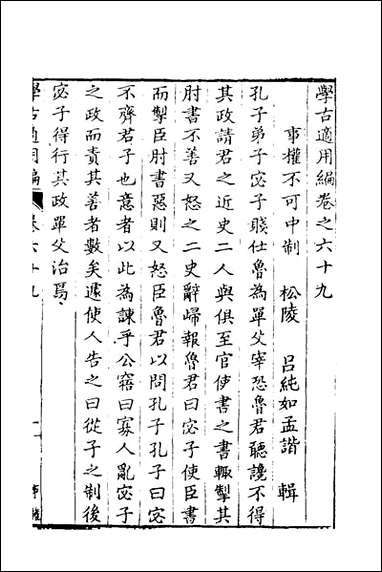 學古適用編卷之六十九
事權不可中制 松陵 呂純如孟諧 輯
孔子弟子宓子賤仕魯為單父宰恐魯君聽讒不得
其政請君之近史二人與俱至官使書之書輒掣其
肘書不善又怒之二史辭歸報魯君曰宓子使臣書
而掣臣肘書惡則又怒臣魯君以問孔子孔子曰宓
不齊君子也意者以此為諫乎公寤曰寡人亂宓子
之政而責其善者數矣遽使人告之曰從子之制後
宓子得行其政單父治焉
學古適用編 卷六十九